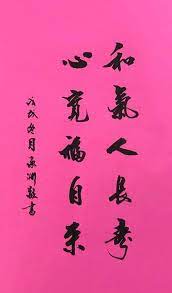 和氣人長壽
心寬福自來
戊戌冬月承渊敬書